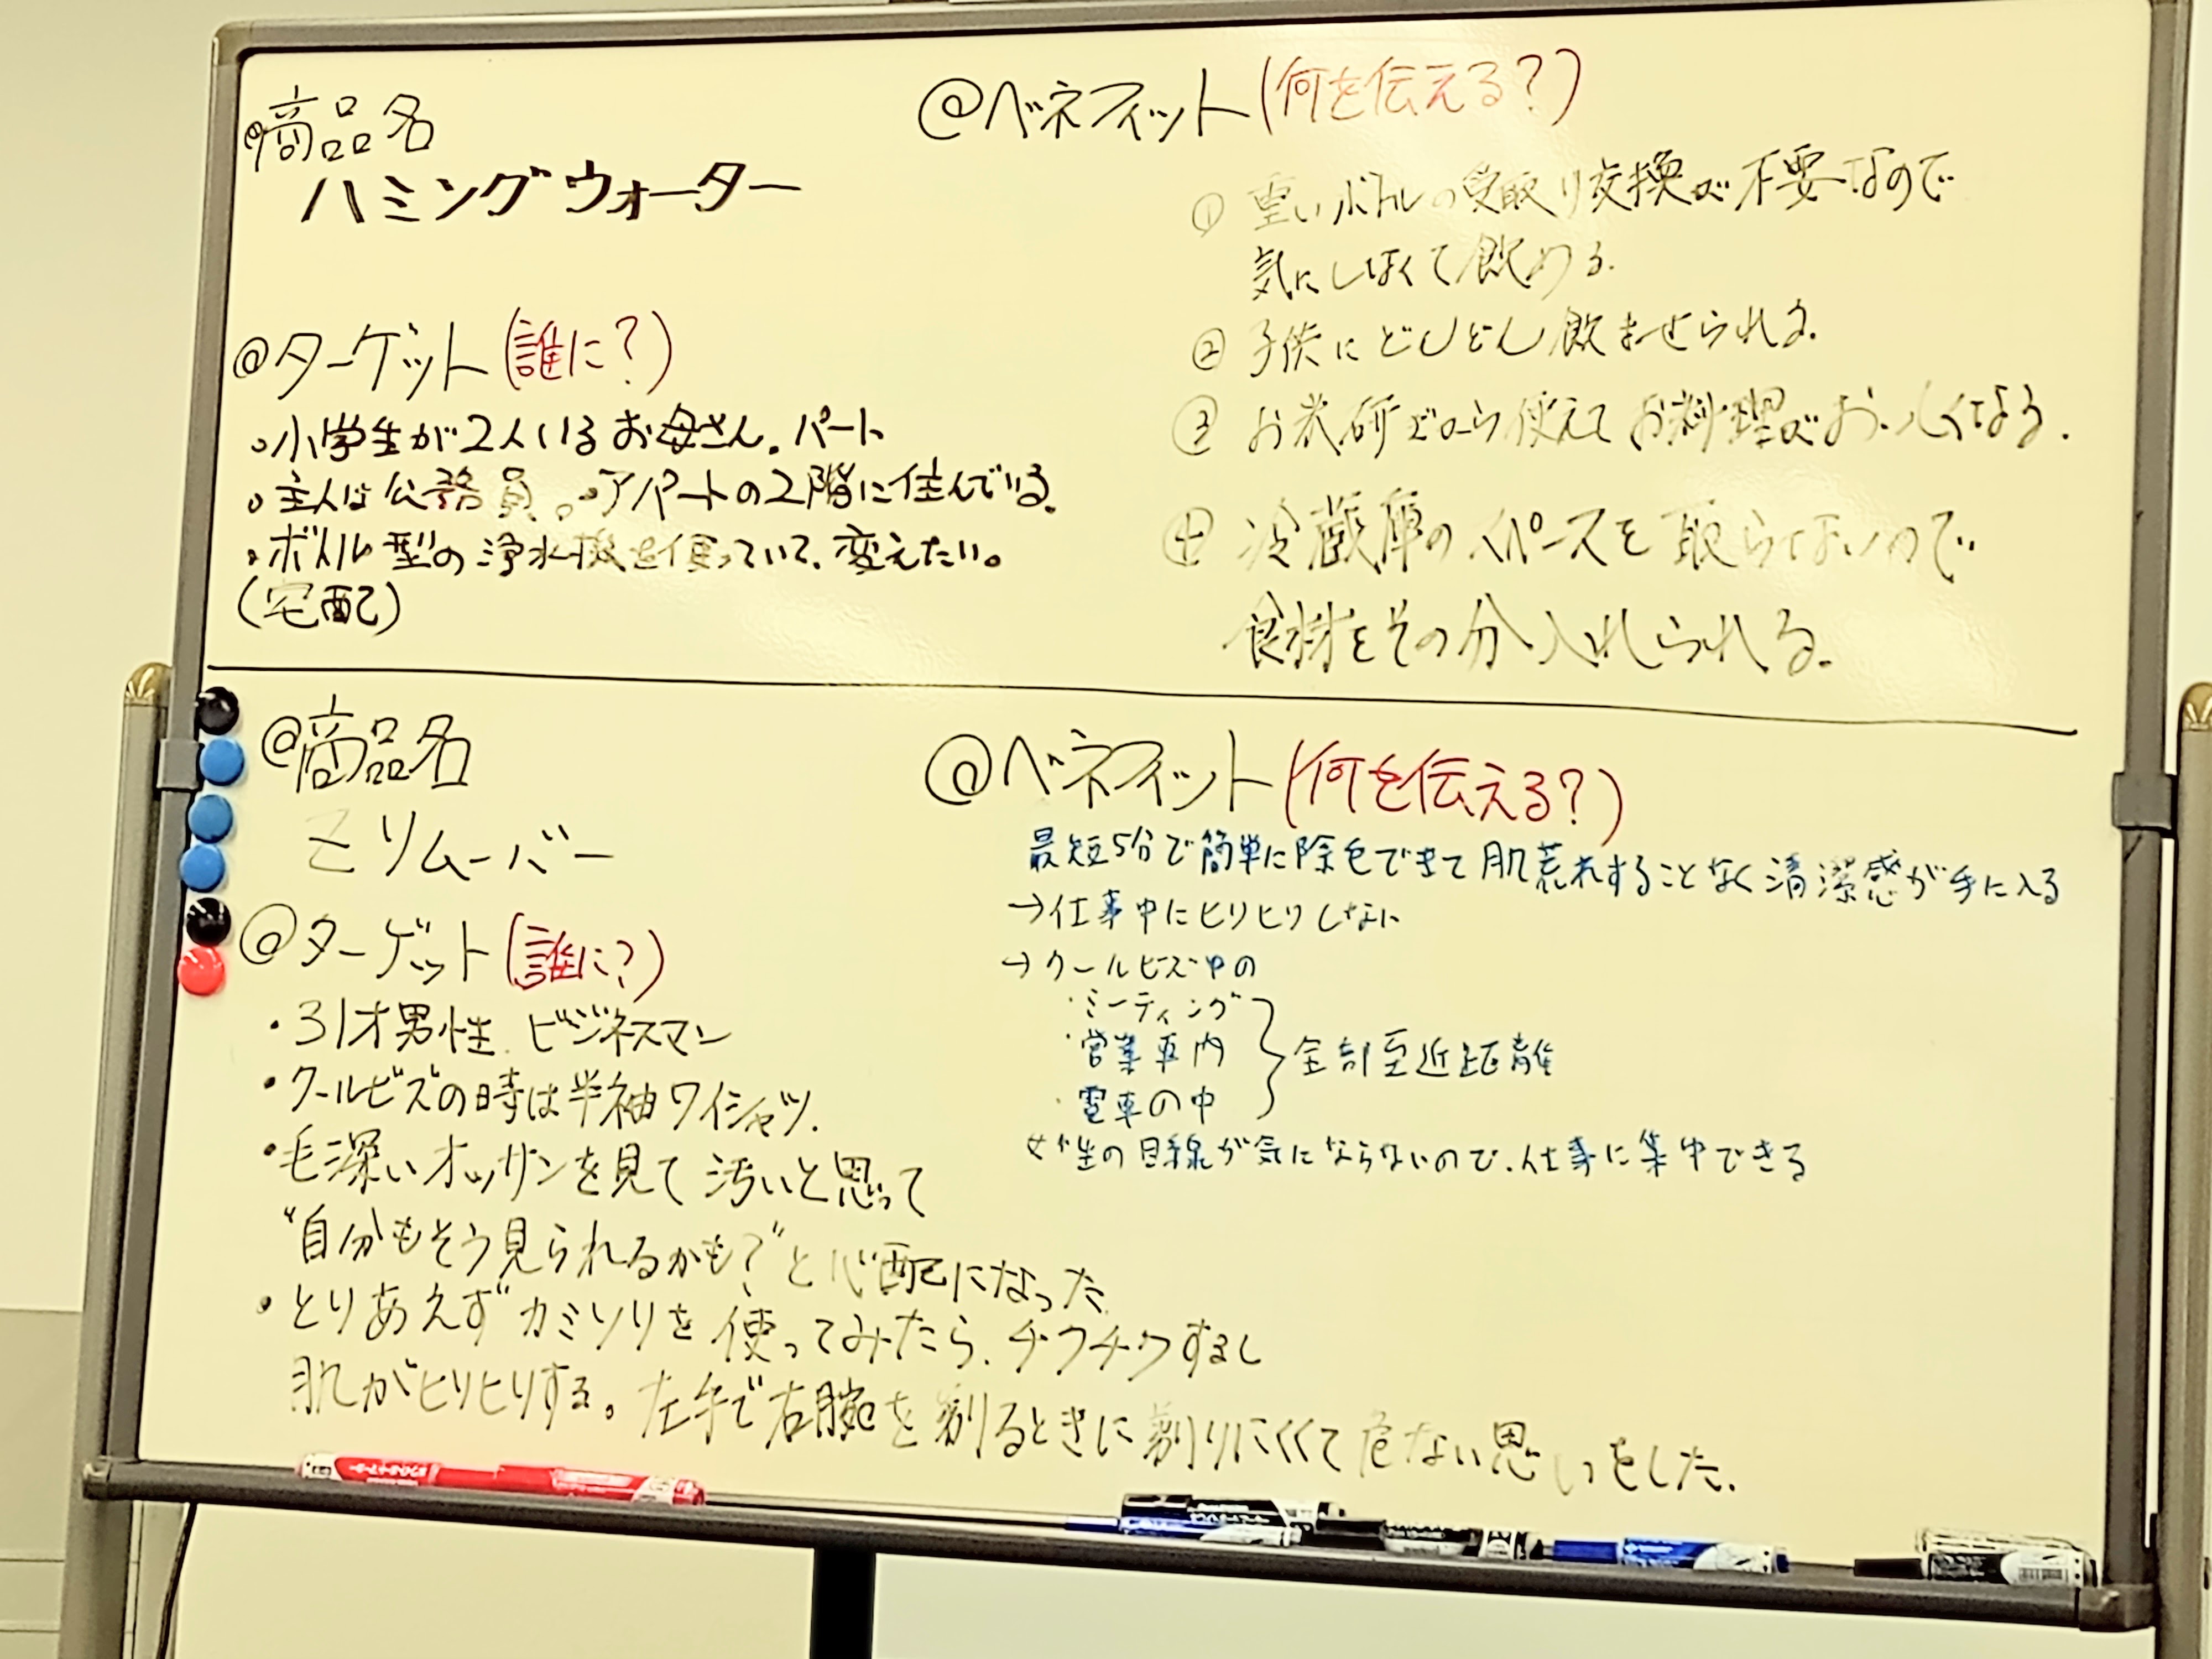 @商品名
ハミングウォーター
@ターゲット(誰に?)
・小学生が2人いるお母さん。パート
・主人は公務員。・アパートの2階に住んでいる。
・ボトル型の浄水機を使っていて、変えたい。
(宅配)
@ベネフィット(何を伝える?)
① 重いボトルの受取り交換が不要なので
気にしなくて飲める。
② 子供にどんどん飲ませられる。
③ お米研ぎから使えてお料理がおいしくなる。
④ 冷蔵庫のスペースを取らないので
食材をその分入れられる。
@商品名
Zリムーバー
@ターゲット(誰に?)
・31才男性 ビジネスマン
・クールビズの時は半袖ワイシャツ.
・毛深いオッサンを見て汚いと思って
"自分もそう見られるかも?"と心配になった
・とりあえずカミソリを使ってみたら、チクチクするし
肌がヒリヒリする。左手で右腕を剃るときに剃りにくくて危ない思いをした.
@ベネフィット(何を伝える?)
最短5分で簡単に除毛できて肌荒れすることなく清潔感が手に入る
→仕事中にヒリヒリしない
→クールビズ中の
・ミーティング
・営業車内
・電車の中
全部至近距離
女性の目線が気にならないので、仕事に集中できる